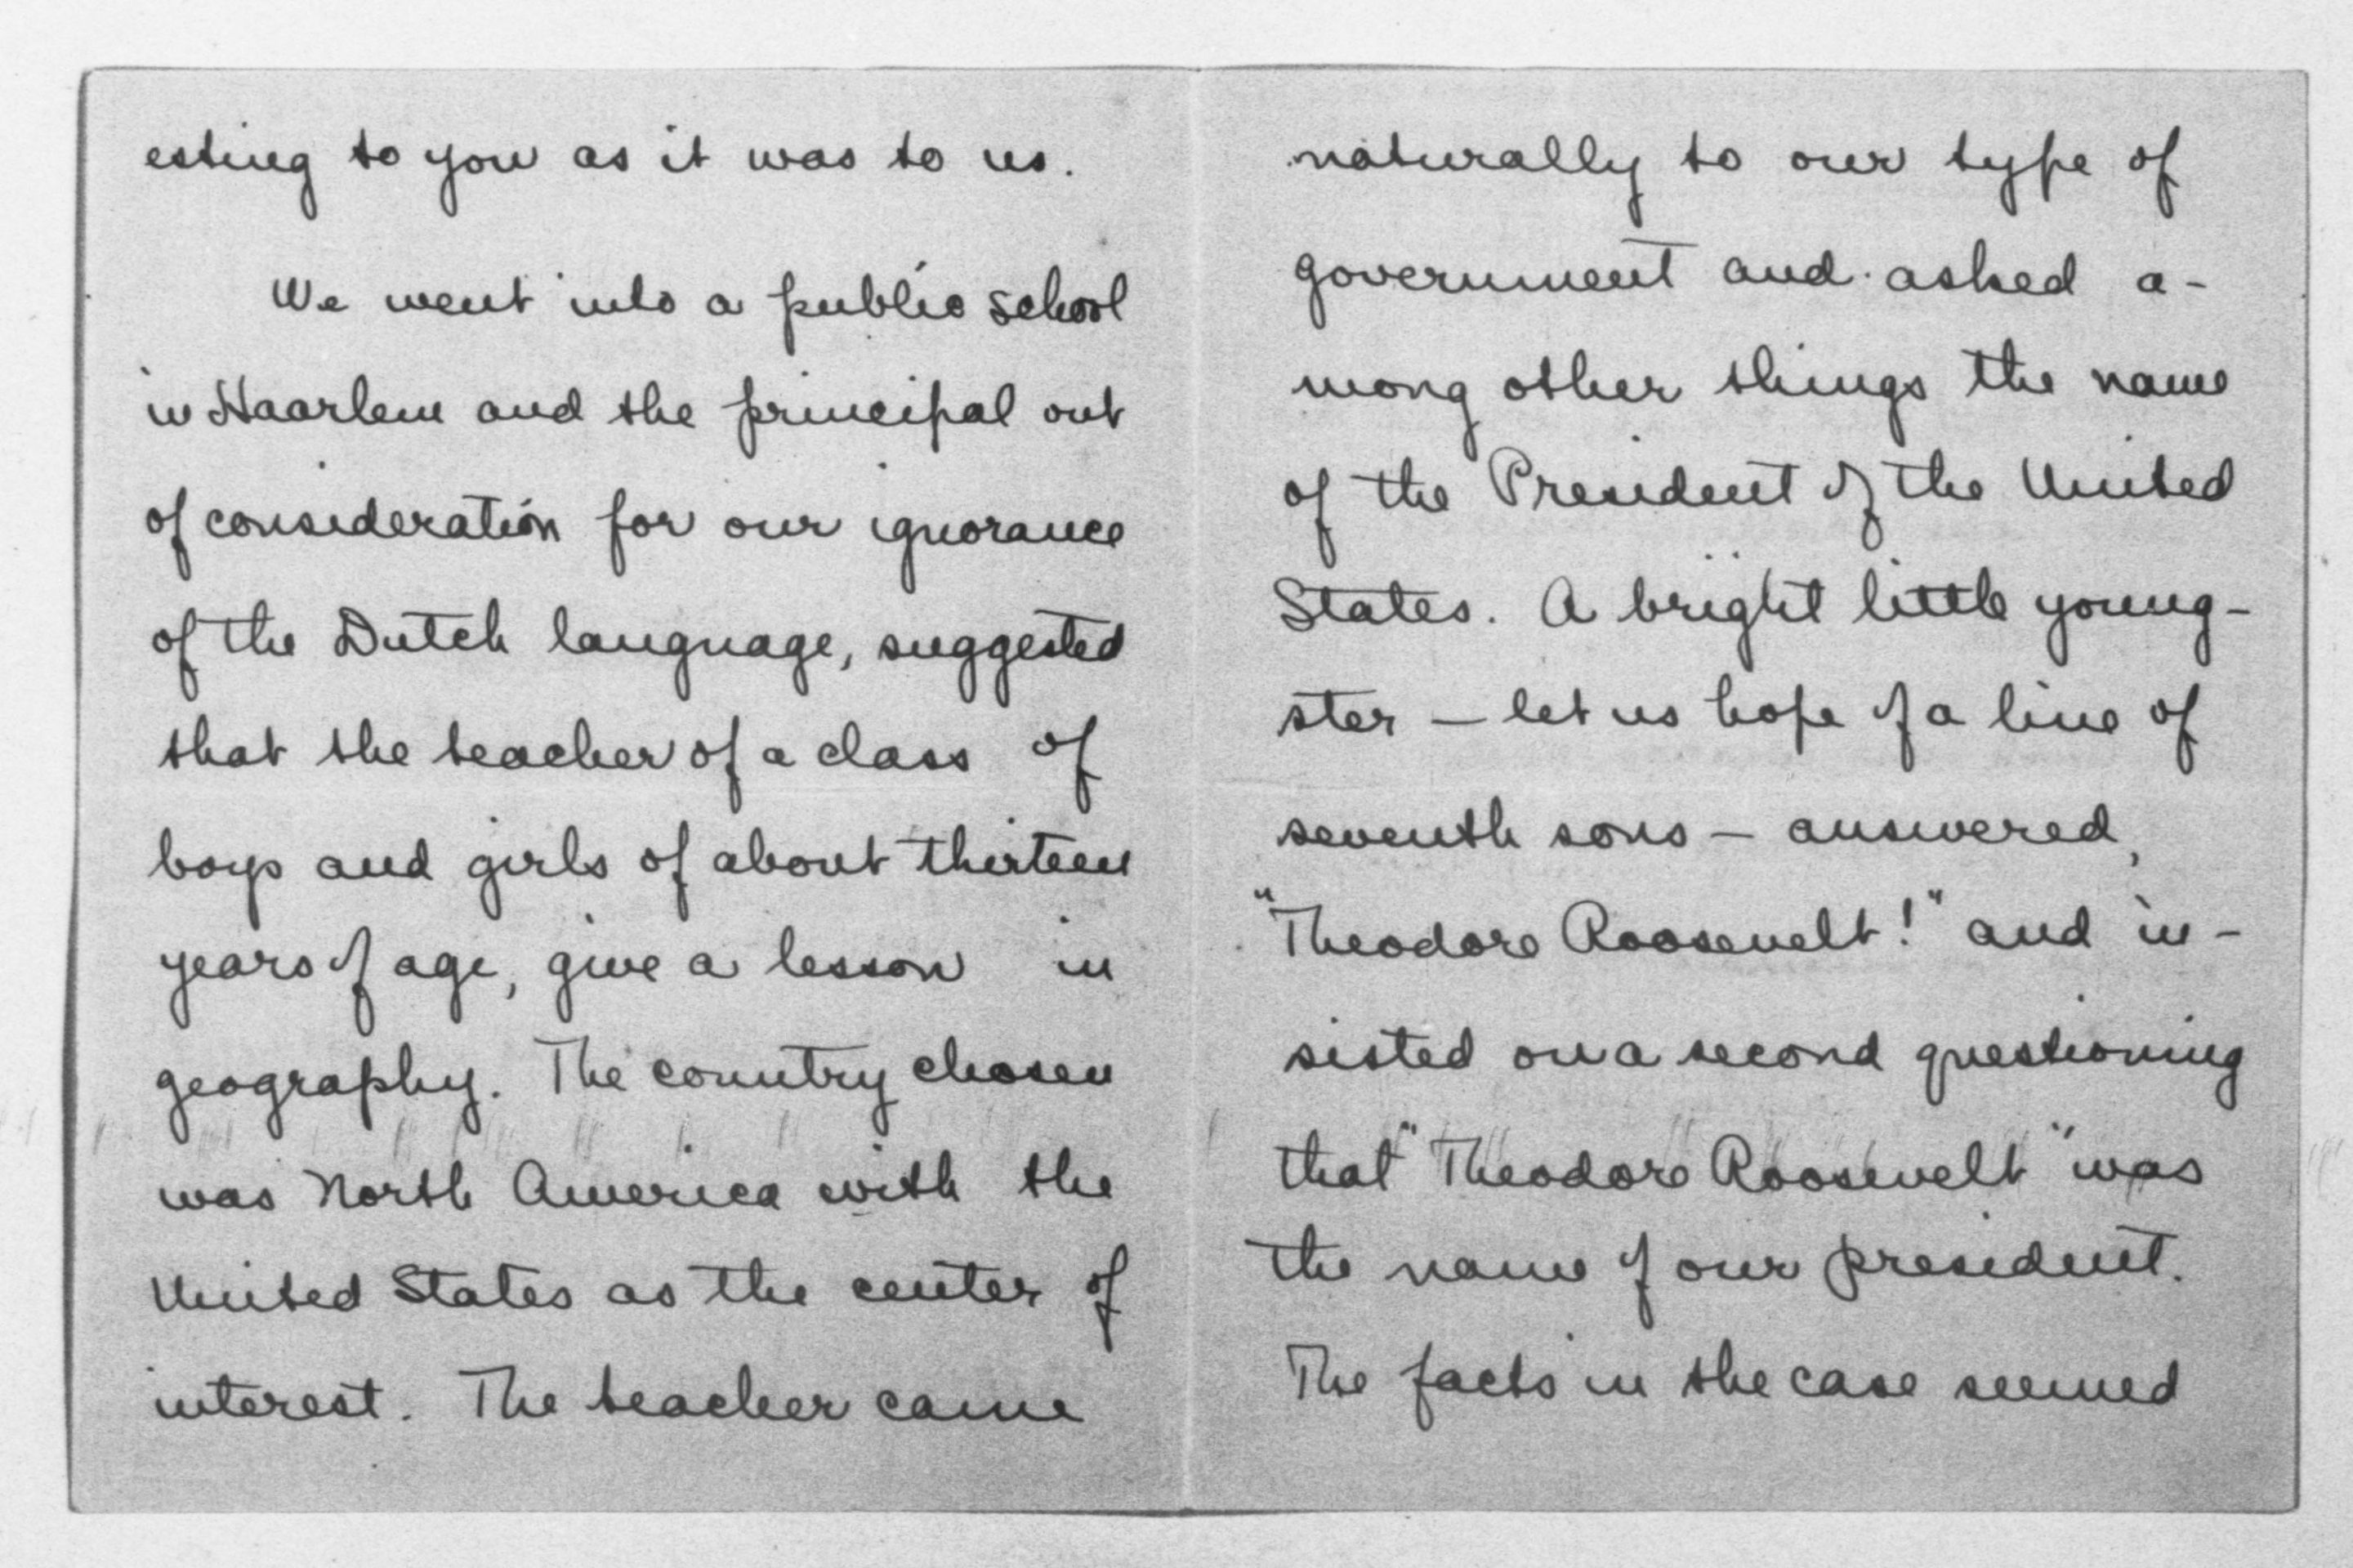 esting to you as it was to us.
We went into a public school
in Haarlem and the principal out
of consideration for our ignorance
of the Dutch language, suggested
that the teacher of a class of
boys and girls of about thirteen
years of age, give a lesson in
geography. The country chosen
was North America with the
United States as the center of
interest. The teacher came
naturally to our type of
government and asked a-
mong other things the name
of the President of the United
States. A bright little young-
ster — let us hope of a line of
seventh sons — answered,
"Theodore Roosevelt!" and in-
sisted on a second questioning
that "Theodore Roosevelt" was
the name of our president.
The facts in the case seemed